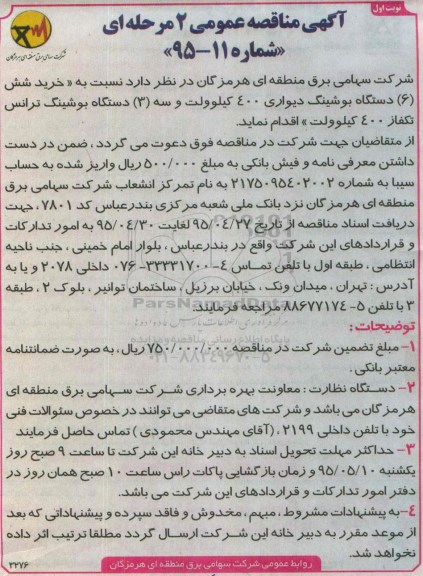 نوبت اول
آگهی مناقصه عمومی ۲ مرحله ای
«شماره ۱۱-۹۵»
شرکت سهامی برق منطقه ای هرمزگان
شرکت سهامی برق منطقه ای هرمزگان در نظر دارد نسبت به « خرید شش
(۶) دستگاه بوشینگ دیواری ۴۰۰ کیلوولت و سه (۳) دستگاه بوشینگ ترانس
تکفاز ۴۰۰ کیلوولت » اقدام نماید.
از متقاضیان جهت شرکت در مناقصه فوق دعوت می گردد ، ضمن در دست
داشتن معرفی نامه و فیش بانکی به مبلغ ۵۰۰/۰۰۰ ریال واریز شده به حساب
سیبا به شماره ۲۱۷۵۰۹۵۴۰۲۰۰۲ به نام تمرکز انشعاب شرکت سهامی برق
منطقه ای هرمزگان نزد بانک ملی شعبه مرکزی بندرعباس کد ۷۸۰۱ ، جهت
دریافت اسناد مناقصه از تاریخ ۹۵/۰۴/۲۷ لغایت ۹۵/۰۴/۳۰ به امور تدارکات
و قراردادهای این شرکت واقع در بندرعباس ، بلوار امام خمینی ، جنب ناحیه
انتظامی ، طبقه اول با تلفن تماس ۴-۳۳۳۳۱۷۰۰-۰۷۶ داخلی ۲۰۷۸ و یا به
آدرس : تهران ، میدان ونک ، خیابان برزیل ، ساختمان توانیر ، بلوک ۲ ، طبقه
۳ با تلفن ۵-۸۸۶۷۷۱۷۴ مراجعه فرمایند.
ParsNamadData
پایگاه اطلاع رسانی مناقصه و مزایده
۰۲۱-۸۸۳۴۹۶۷۰-۵
توضیحات :
۱- مبلغ تضمین شرکت در مناقصه ۷۵۰/۰۰۰/۰۰۰ ریال، به صورت ضمانتنامه
معتبر بانکی .
۲- دستگاه نظارت : معاونت بهره برداری شرکت سهامی برق منطقه ای
هرمزگان می باشد و شرکت های متقاضی می توانند در خصوص سئوالات فنی
خود با تلفن داخلی ۲۱۹۹ ، (آقای مهندس محمودی ) تماس حاصل فرمایند
۳- حداکثر مهلت تحویل اسناد به دبیر خانه این شرکت تا ساعت ۹ صبح روز
یکشنبه ۹۵/۰۵/۱۰ و زمان بازگشایی پاکات راس ساعت ۱۰ صبح همان روز در
دفتر امور تدارکات و قراردادهای این شرکت می باشد.
۴- به پیشنهادات مشروط ، مبهم ، مخدوش و فاقد سپرده و پیشنهاداتی که بعد
از موعد مقرر به دبیر خانه این شرکت ارسال گردد مطلقا ترتیب اثر داده
نخواهد شد.
روابط عمومی شرکت سهامی برق منطقه ای هرمزگان
۳۲۷۶